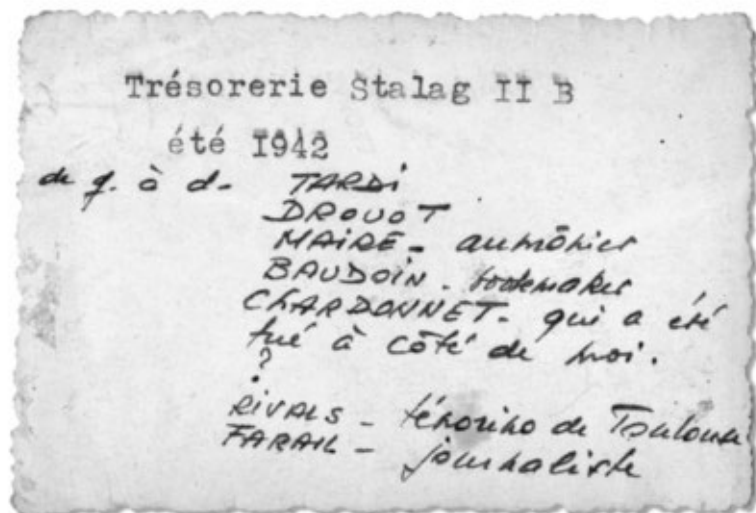 Trésorerie Stalag II B
été 1942
de g. à d. TARDI
DROUOT
MAIRE - aumônier
BAUDOIN - bookmaker
CHARDONNET - qui a été
tué à côté de moi.
?
RIVALS - ténorino de Toulouse
FARAIL - journaliste